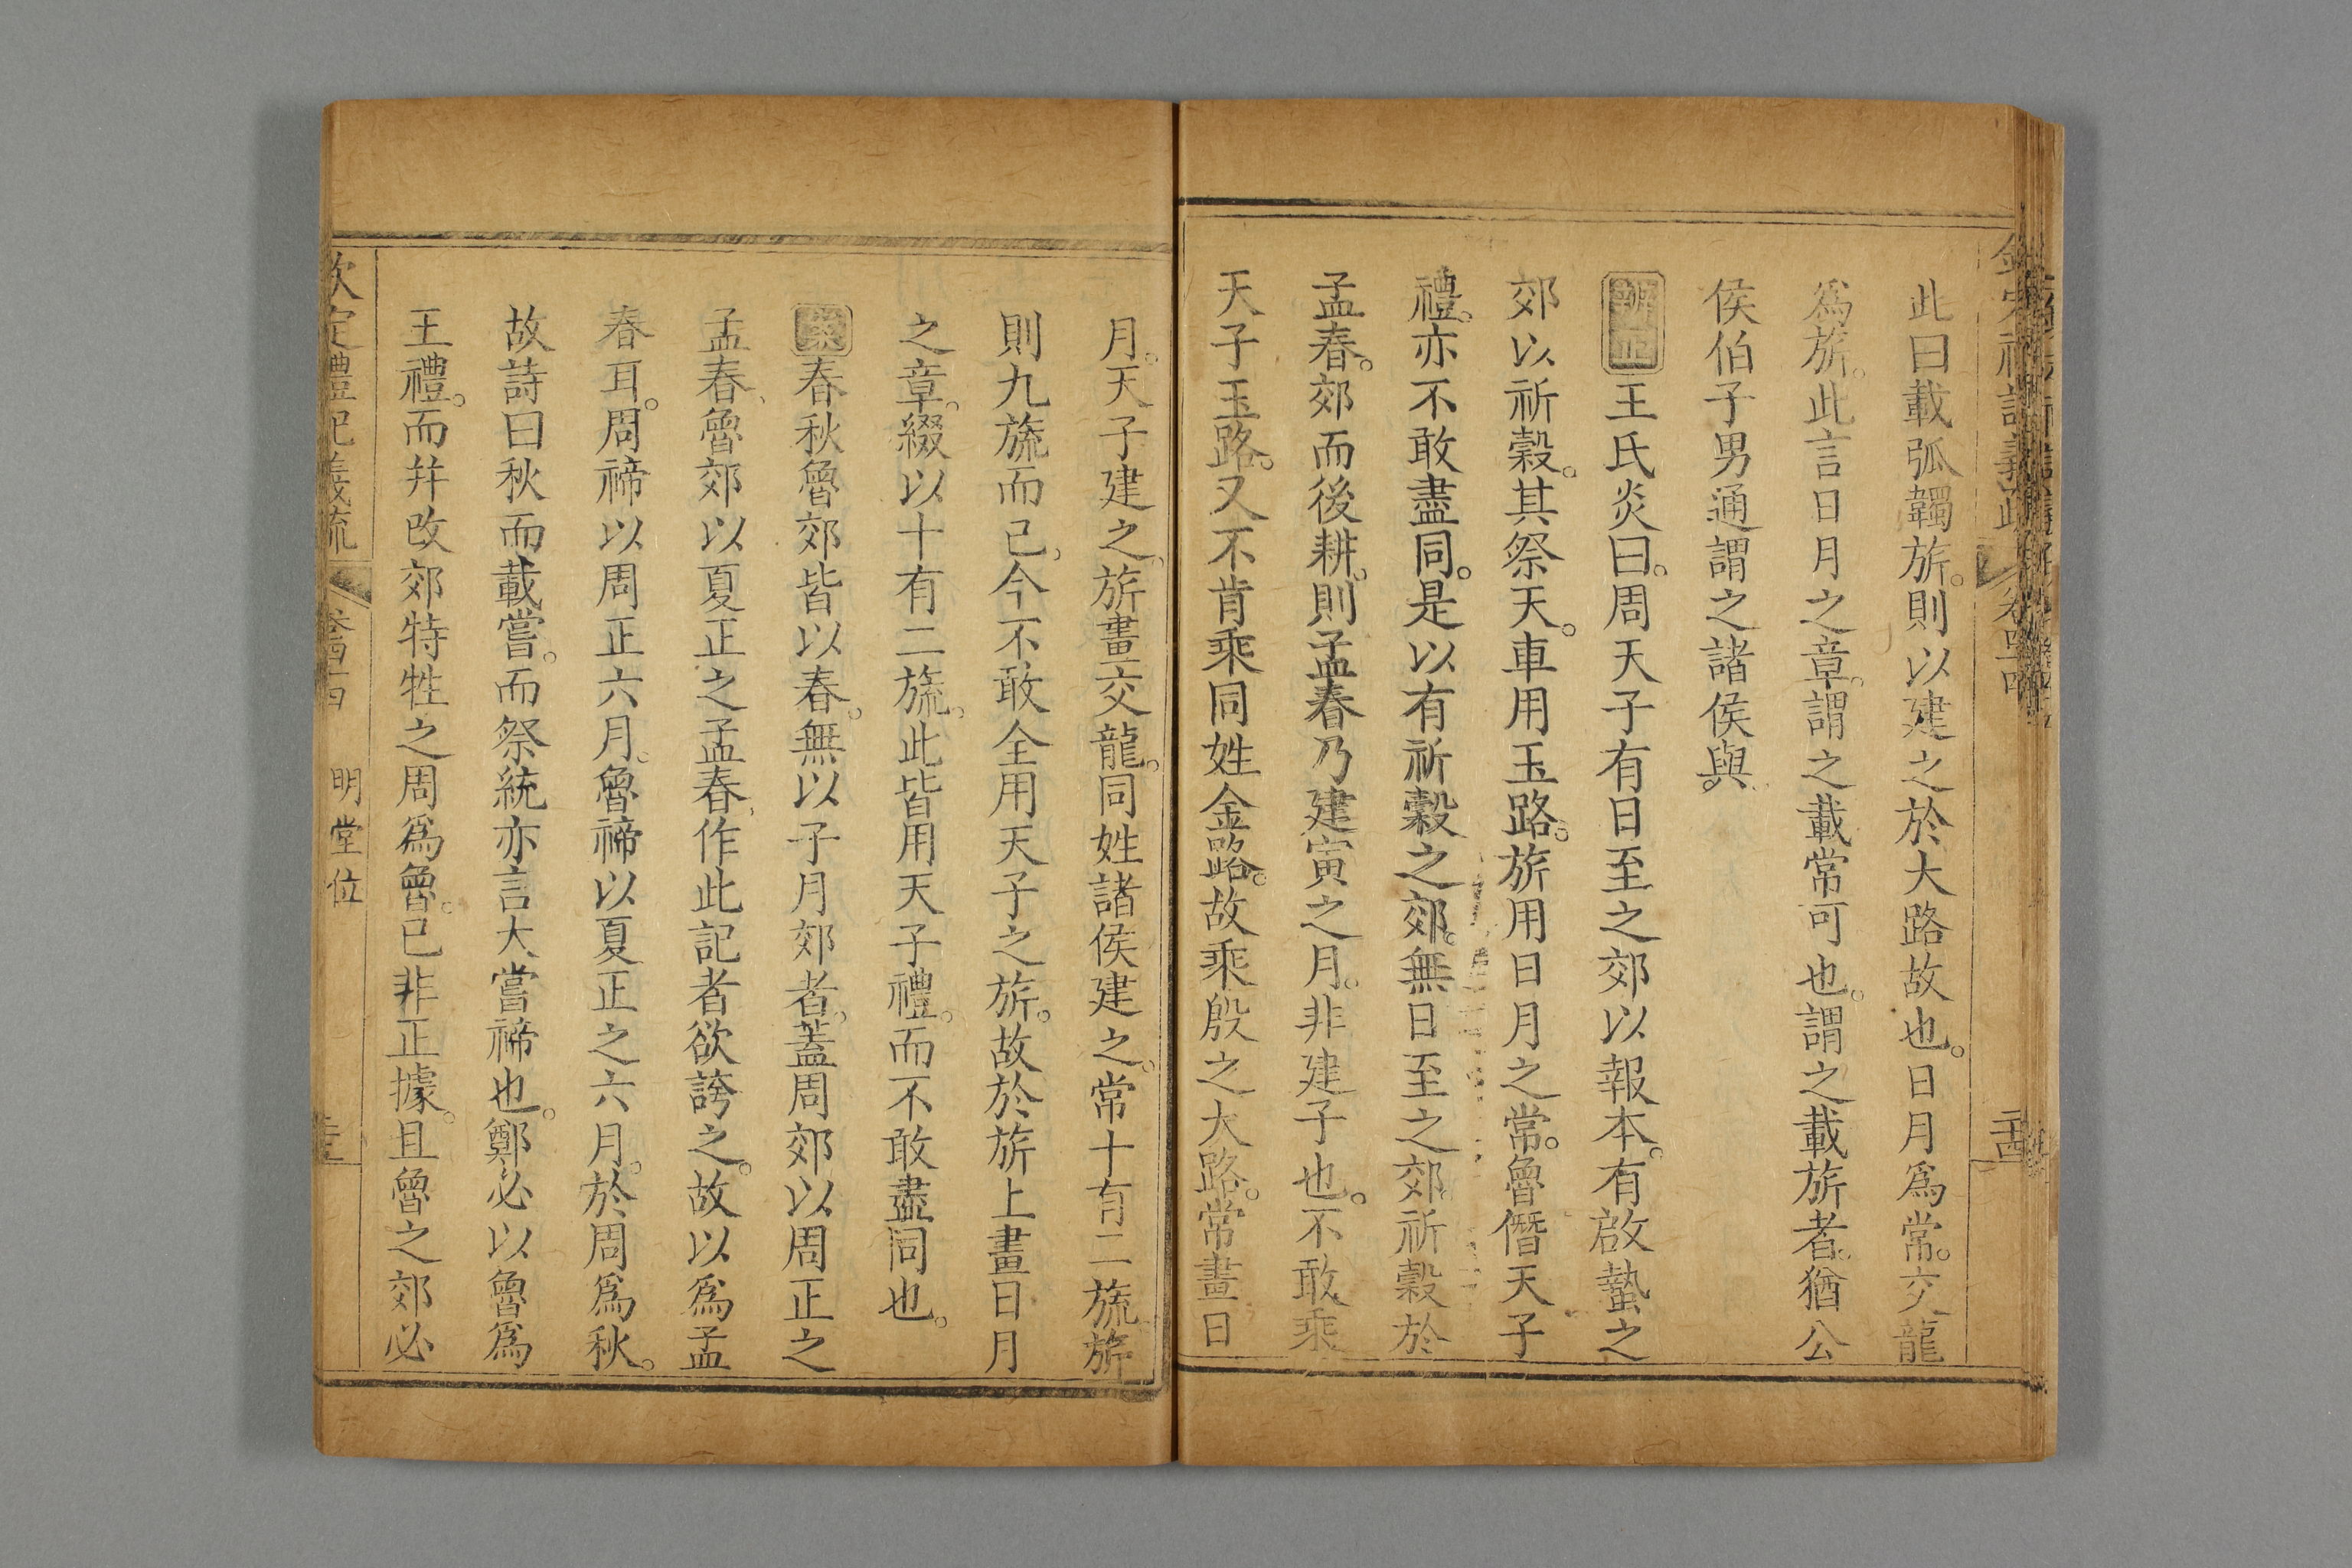 此曰載弧韣旂。則以建之於大路故也。日月爲常。交龍
爲旂。此言日月之章。謂之載常可也。謂之載旂者。猶公
侯伯子男通謂之諸侯與。
辨正王氏炎曰。周天子有日至之郊以報本。有啟蟄之
郊以祈穀。其祭天。車用玉路。旂用日月之常。魯僭天子
禮。亦不敢盡同。是以有祈穀之郊。無日至之郊。祈穀於
孟春。郊而後耕。則孟春乃建寅之月。非建子也。不敢乘
天子玉路。又不肯乘同姓金路。故乘殷之大路。常畫日
月。天子建之。旂畫交龍。同姓諸侯建之。常十有二旒。旂
則九旒而已。今不敢全用天子之旂。故於旂上畫日月
之章。綴以十有二旒。此皆用天子禮。而不敢盡同也。
案春秋魯郊皆以春。無以子月郊者。蓋周郊以周正之
孟春、魯郊以夏正之孟春、作此記者欲誇之。故以爲孟
春耳。周禘以周正六月。魯禘以夏正之六月。於周爲秋。
故詩曰秋而載嘗。而祭統亦言大嘗禘也。鄭必以魯爲
王禮。而幷改郊特牲之周爲魯。已非正據。且魯之郊必
欽定禮記義疏
卷四十四 明堂位